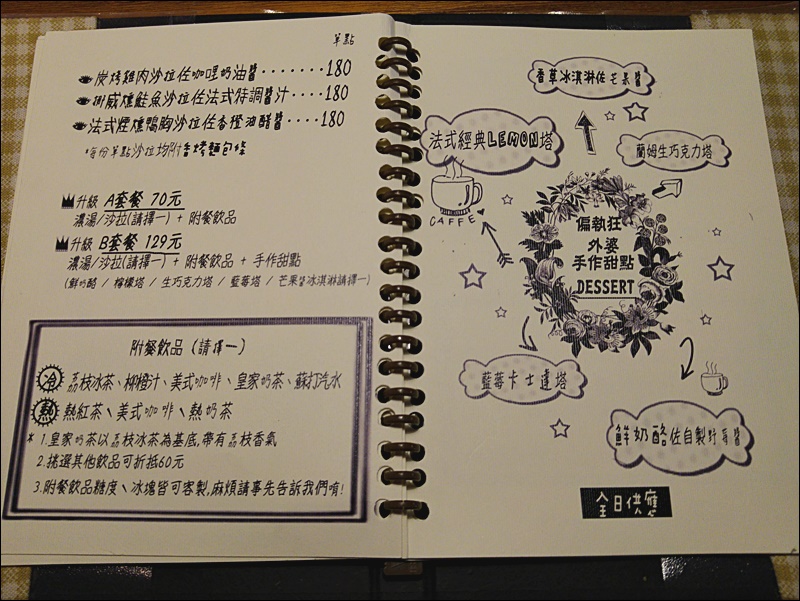 單點
炭烤雞肉沙拉佐咖哩奶油醬‧‧‧‧‧‧‧180
挪威燻鮭魚沙拉佐法式特調醬汁‧‧‧‧180
法式煙燻鴨胸沙拉佐香橙油醋醬‧‧‧‧180
*每份單點沙拉均附香烤麵包條
升級 A套餐 70元
濃湯/沙拉(請擇一) + 附餐飲品
升級 B套餐 129元
濃湯/沙拉(請擇一) + 附餐飲品 + 手作甜點
(鮮奶酪 / 檸檬塔 / 生巧克力塔 / 藍莓塔 / 芒果醬冰淇淋請擇一)
附餐飲品 (請擇一)
冷 荔枝冰茶、柳橙汁、美式咖啡、皇家奶茶、蘇打汽水
熱 熱紅茶、美式咖啡、熱奶茶
* 1.皇家奶茶以荔枝冰茶為基底,帶有荔枝香氣
2.挑選其他飲品可折抵60元
3.附餐飲品糖度、冰塊皆可客製,麻煩請事先告訴我們唷!
香草冰淇淋佐芒果醬
法式經典LEMON塔
蘭姆生巧克力塔
CAFFE
偏執狂
外婆
手作甜點
DESSERT
藍莓卡士達塔
鮮奶酪佐自製
全日供應